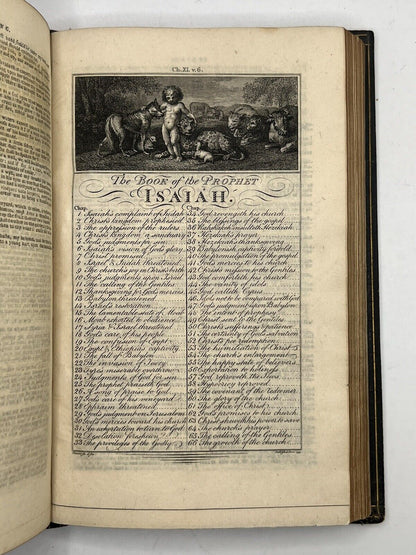 Ch. XI. v. 6.
The BOOK of the PROPHET
ISAIAH.
Chap.
1 Isaiah's complaint of Judah
2 Christ's kingdom prophesied
3 The oppression of the rulers
4 Christ's kingdom a sanctuary
5 God's judgments for sin
6 Isaiah's vision of God's glory
7 Christ promised
8 Israel & Judah threatened
9 The church's joy in Christ's birth
10 God's judgments upon Israel
11 The calling of the Gentiles
12 Thanksgiving for God's mercies
13 Babylon threatened
14 Israel's restoration
15 The lamentable state of Moab
16 Moab exhorted to obedience
17 Syria & Israel threatened
18 God's care of his people
19 The confusion of Egypt
20 Egypt & Ethiopia's captivity
21 The fall of Babylon
22 The invasion of Jewry
23 Tyre's miserable overthrow
24 Judgments of God for sin
25 The prophet praiseth God
26 A song of praise to God
27 God's care of his vineyard
28 Ephraim threatened
29 God's judgment upon Jerusalem
30 God's mercies toward his church
31 An exhortation to turn to God
32 Desolation foreshewn
33 The privileges of the Godly
Chap.
34 God revengeth his church
35 The blessings of the gospel
36 Rabshakeh insulteth Hezekiah
37 Hezekiah's prayer
38 Hezekiah's thanksgiving
39 Babylonish captivity foretold
40 The promulgation of the gospel
41 God's mercy to his church
42 Christ's mission to the Gentiles
43 God comforteth his church
44 The vanity of idols
45 God calleth Cyrus
46 Idols not to be compared with God
47 God's judgment upon Babylon
48 The intent of prophecy
49 Christ sent to the Gentiles
50 Christ's sufferings & patience
51 The certainty of God's salvation
52 Christ's free redemption
53 The humiliation of Christ
54 The church's enlargement
55 The happy state of believers
56 Exhortation to holiness
57 God reproveth the Jews
58 Hypocrisy reproved
59 The covenant of the redeemer
60 The glory of the church
61 The office of Christ
62 God's promises to his church
63 Christ sheweth his power to save
64 The church's prayer
65 The calling of the Gentiles
66 The growth of the church